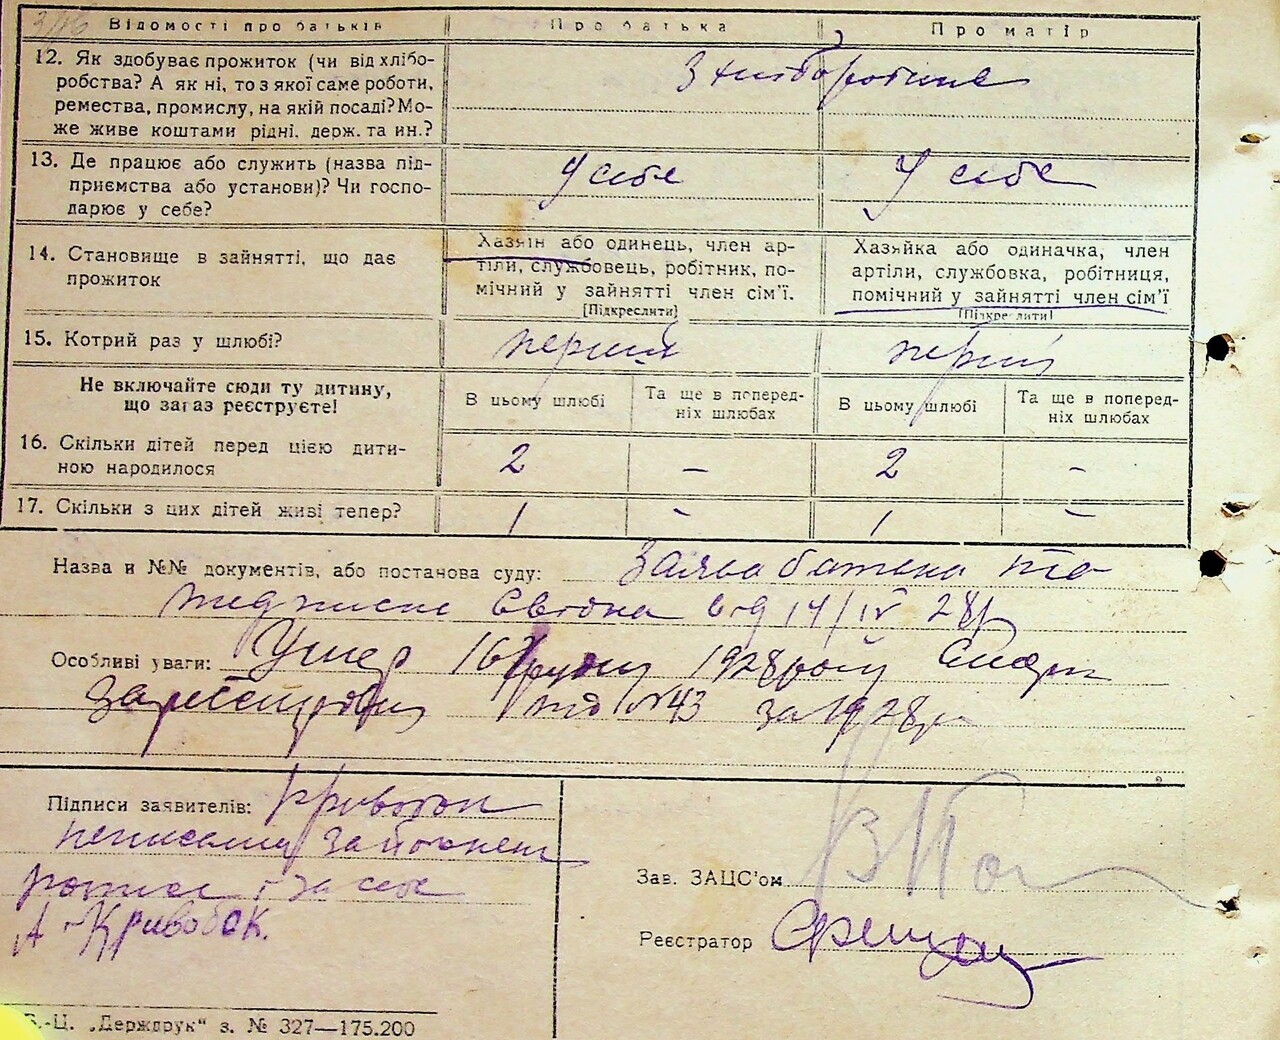 Відомості про батьків Про батька Про матір
12. Як здобуває прожиток (чи від хлібо-
робства? А як ні, то з якої саме роботи,
ремества, промислу, на якій посаді? Мо-
же живе коштами рідні, держ. та ин.?
З хліборобства
13. Де працює або служить (назва під-
приємства або установи)? Чи госпо-
дарює у себе?
У себе У себе
14. Становище в зайнятті, що дає
прожиток
Хазяїн або одинець, член ар-
тіли, службовець, робітник, по-
мічний у зайнятті член сім'ї.
[Підкреслити]
Хазяйка або одиначка, член
артіли, службовка, робітниця,
помічний у зайнятті член сім'ї
[Підкреслити]
15. Котрий раз у шлюбі? перший перший
Не включайте сюди ту дитину,
що зараз реєструєте!
В цьому шлюбі
Та ще в поперед-
ніх шлюбах
В цьому шлюбі
Та ще в поперед-
ніх шлюбах
16. Скільки дітей перед цією дити-
ною народилося
2 – 2 –
17. Скільки з цих дітей живі тепер? 1 – 1 –
Назва и №№ документів, або постанова суду: Заява батька та
від 14/IV 28р
Особливі уваги: Умер 16 грудня 1928 року
Зареєстровано № 43 за 1928р
Підписи заявителів: Кривобок
неписьмен за його
розписався за себе
А Кривобок.
Зав. ЗАЦС'ом
Реєстратор
Б.-Ц. „Держдрук“ з. № 327—175.200